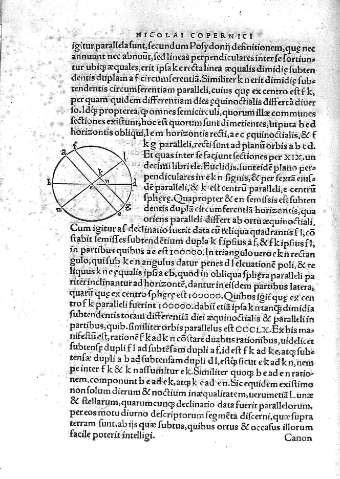 NICOLAI COPERNICI
igitur parallela sunt, secundum Posydonij definitionem, quę nec
annuunt nec abnuūt, sed lineas perpendiculares inter se sortiun-
tur ubiq; æquales, erit ipsa k e recta linea æqualis dimidię subten
dentis duplam a f circumferentiā. Similiter k n erit dimidię sub-
tendentis circumferentiam paralleli, cuius quę ex centro est f k,
per quam quidem differentiam dies ęquinoctialis differt à diuer
so. Idq; propterea, quòd omnes semicirculi, quorum illæ communes
sectiones existunt, hoc est quorum sunt dimetientes, utputa b e d
horizontis obliqui, l e m horizontis recti, a e c ęquinoctialis, & f
k g paralleli, recti sunt ad planū orbis a b c d.
Et quas inter se faciunt sectiones per XIX. un
decimi libri elē. Euclidis, sunt eidē plano per
pendiculares in e k n signis, & per sextā eius-
dē paralleli, & k est centrū paralleli, e centrū
sphęrę. Quapropter & e n semissis est subten
dentis duplā circumferentiā horizontis, qua
oriens paralleli differt ab ortu æquinoctiali.
Cum igitur a f declinatio fuerit data cū reliqua quadrantis f l, cō
stabūt semisses subtendētium dupla k e ipsius a f, & f k ipsius f l,
in partibus quibus a e est 100000. In triangulo uero e k n rectan
gulo, qui sub k e n angulus datur penes d l eleuationē poli, & re
liquus k n e ęqualis ipsi a e b, quòd in obliqua sphęra paralleli pa
riter inclinantur ad horizontē, dantur in eisdem partibus latera,
quarū quę ex centro sphęrę est 100000. Quibus igit quę ex cen
tro f k paralleli fuerint 100000. dabit etiā ipsa k n tanq; dimidia
subtendentis totam differentiā diei æquinoctialis & paralleli in
partibus, quib. similiter orbis parallelus est CCCLX. Ex his ma-
nifestū est, rationē f k ad k n cōstare duabus rationibus, uidelicet
subtensę dupli f l ad subtēsam dupla a f, id est f k ad k e, atq; sub-
tensæ dupli a b ad subtensam dupli d l, estq; sicut e k ad k n, nem
pe inter f k & k n assumitur e k. Similiter quoq; b e ad e n ratio-
nem, componunt b e ad e k, atq; k e ad e n. Sic equidem existimo
non solum dierum & noctium inæqualitatem, uerumetiā Lunæ
& stellarum, quarumcunq; declinatio data fuerit parallelorum,
per eos motu diurno descriptorum segmēta discerni, quæ supra
terram sunt, ab ijs quæ subtus, quibus ortus & occasus illorum
facile poterit intelligi.
Canon